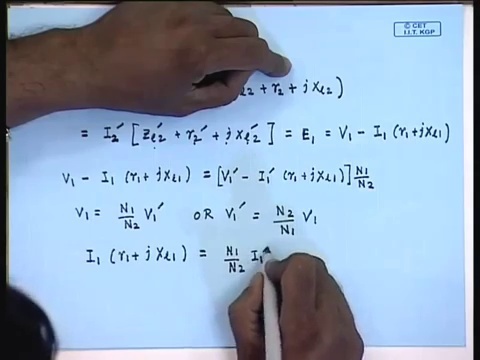 © CET
I.I.T. KGP
z₂ + r₂ + j x_l2)
= I₂′ [ Z_l2′ + r₂′ + j x_l2′ ] = E₁ = V₁ − I₁ (r₁ + j x_l1)
V₁ − I₁ (r₁ + j x_l1) = [V₁′ − I₁′ (r₁ + j x_l1)] N₁/N₂
V₁ = N₁/N₂ V₁′ OR V₁′ = N₂/N₁ V₁
I₁ (r₁ + j x_l1) = N₁/N₂ I₁